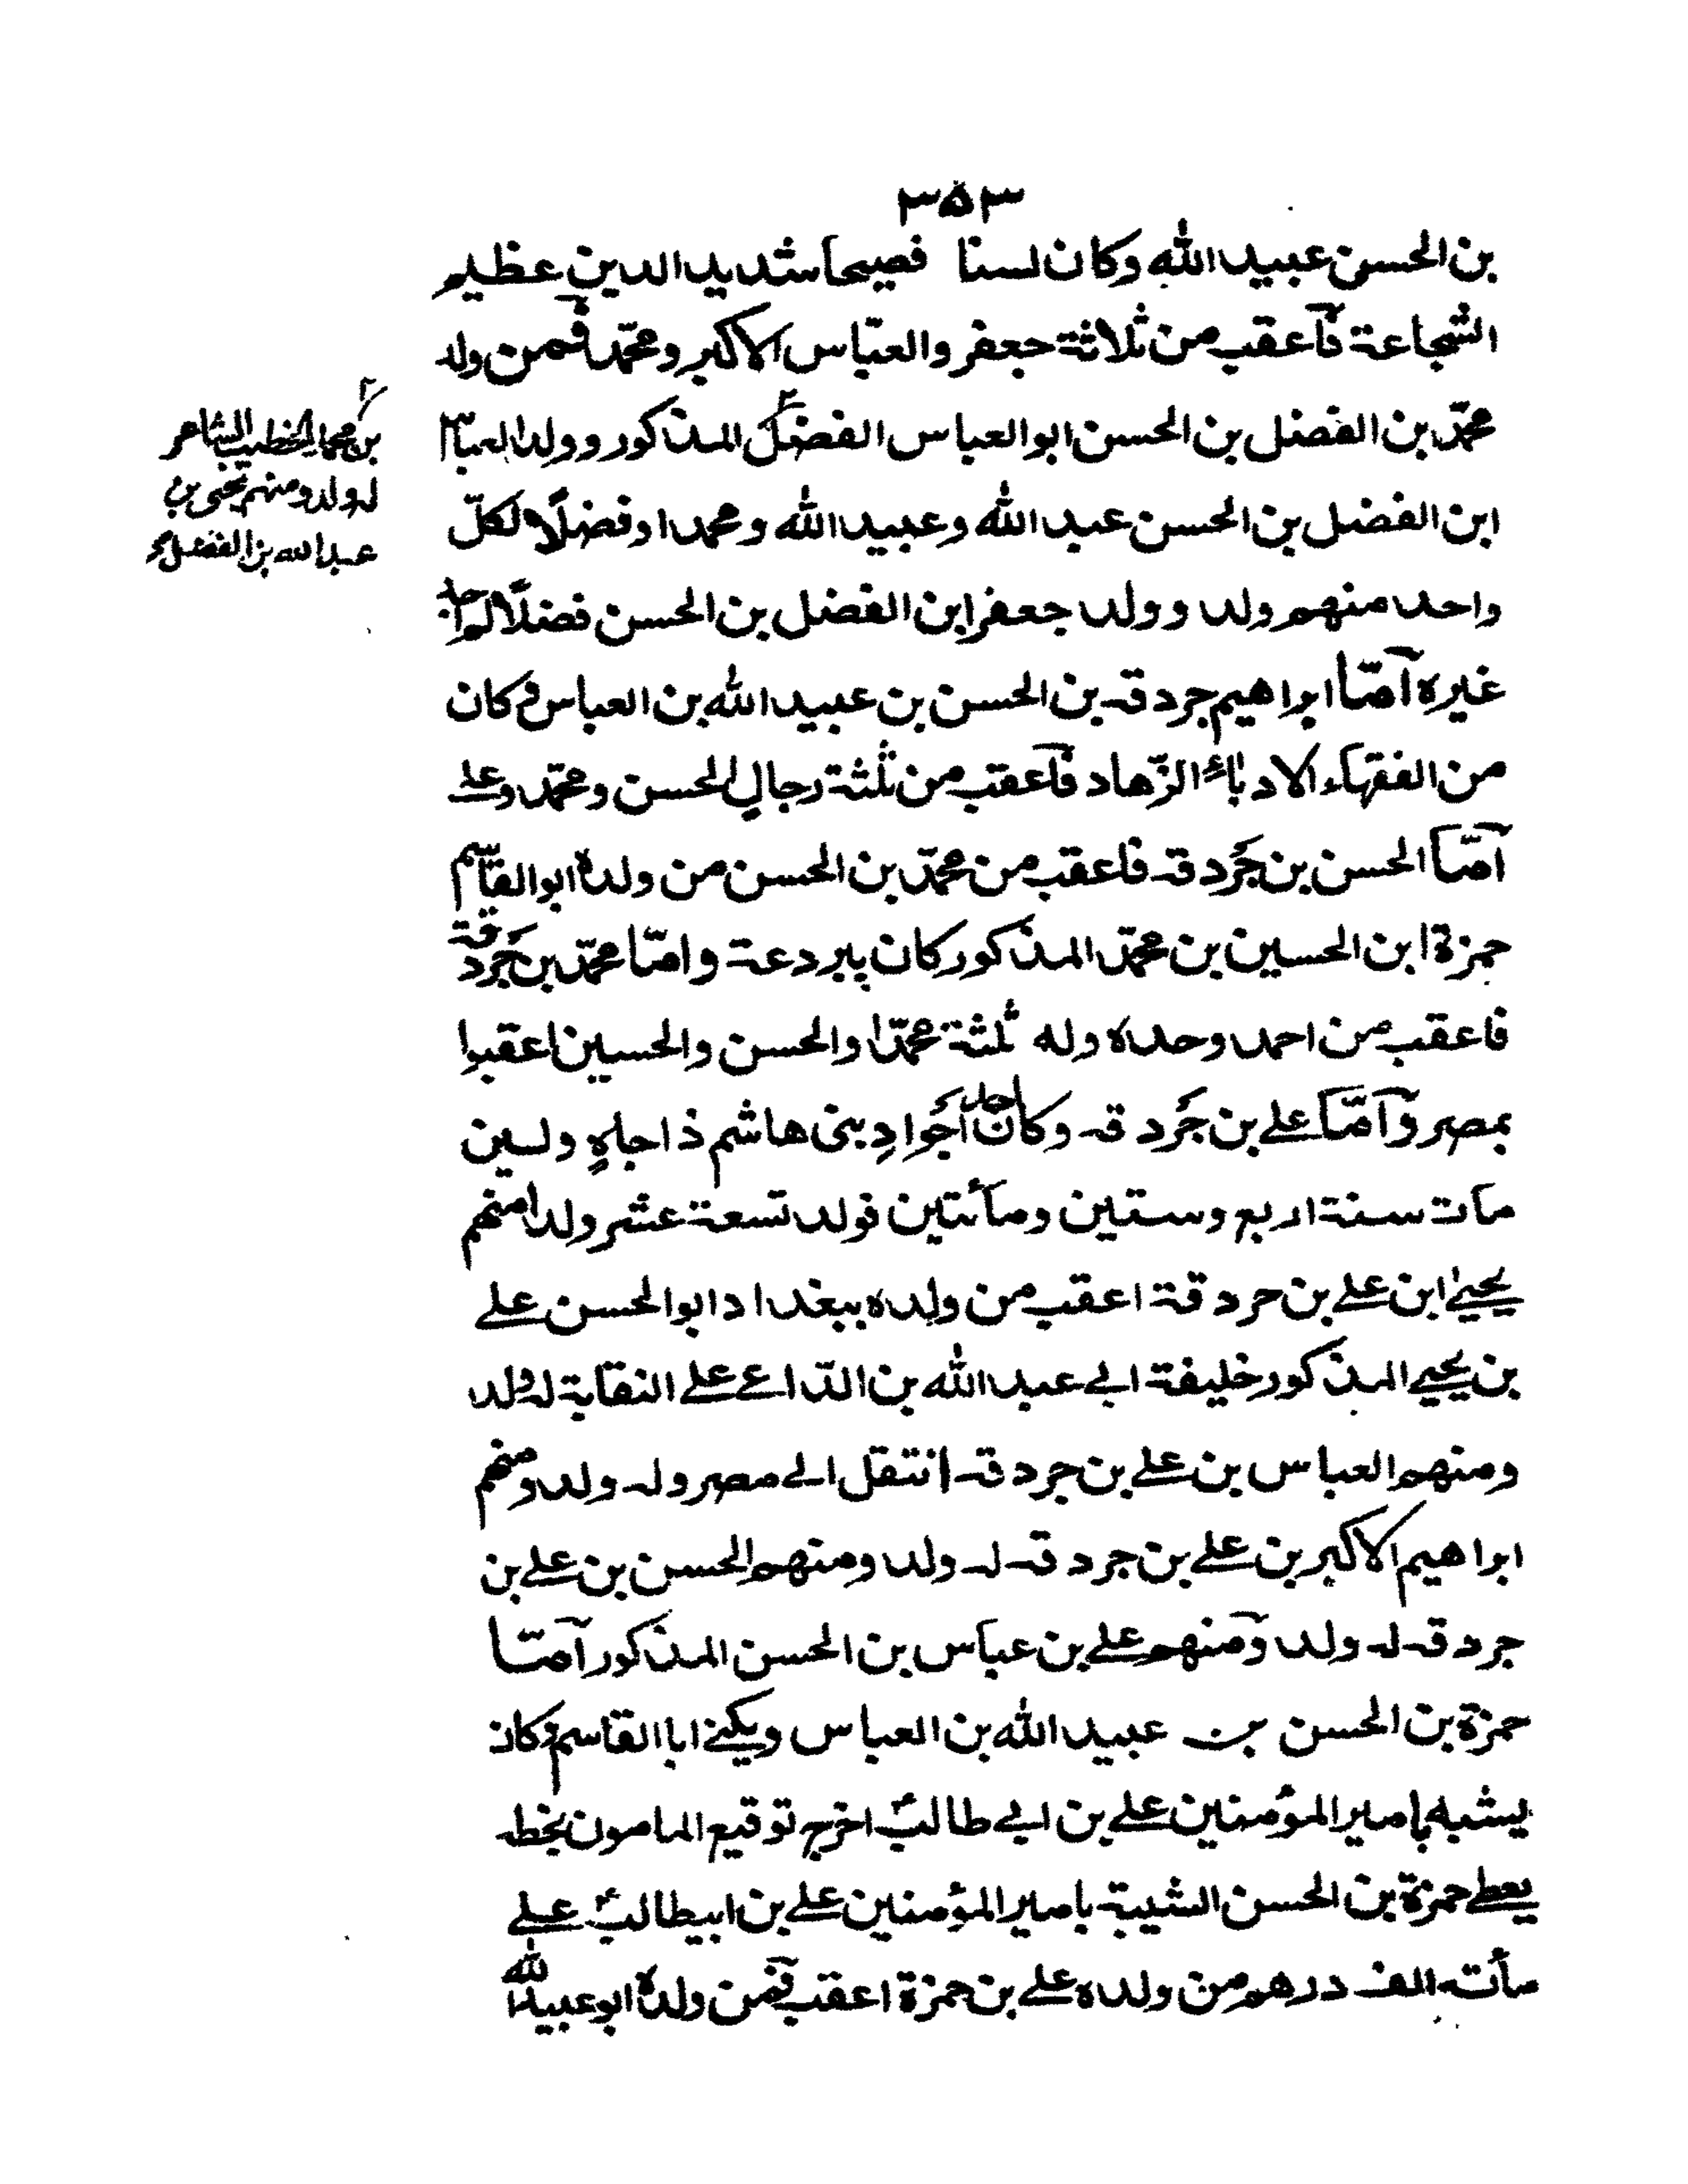 ٣٥٣
بن الحسن عبيد الله وكان لسنا فصيحا شديد الدين عظيم
الشجاعة فآعقب من ثلاثة جعفر والعبّاس الاكبر ومحمّد فمن ولد
محمّد بن الفضل بن الحسن ابو العباس الفضل المذكور وولد العباس
ابن الفضل بن الحسن عبد الله وعبيد الله ومحمدا وفضلًا لكلّ
واحد منهم ولد وولد جعفر ابن الفضل بن الحسن فضلًا
غيره آمّا ابراهيم جردقه بن الحسن بن عبيد الله بن العباس فكان
من الفقهاء الادباء الزّهاد فآعقب من ثلثة رجالٍ الحسن ومحمّد وعلے
آمّا الحسن بن جَردقه فاعقب من محمّد بن الحسن من ولده ابو القاسم
حمزة ابن الحسين بن محمّد المذكور كان ببردعة وامّا محمّد بن جَردقة
فاعقب من احمد وحده وله ثلثة محمّدا والحسن والحسين اعقبوا
بمصر وآمّا علے بن جَردقه وكان احد اَجَوادِ بنى هاشم ذا جاهٍ ولسين
مات سنة اربع وستين ومأتين فولد تسعة عشر ولدا منهم
يحيےٰ ابن علے بن حردقة اعقب من ولده ببغداد ابو الحسن علے
بن يحيے المذكور خليفة ابے عبد الله بن الدّاعے علے النقابة له ولد
ومنهم العباس بن علے بن جردقه انتقل الے مصر وله ولد ومنهم
ابراهيم الاكبر بن علے بن جردقه له ولد ومنهم الحسن بن علے بن
جردقه له ولد وٓمنهم علے بن عباس بن الحسن المذكور آمّا
حمزة بن الحسن بن عبيد الله بن العباس ويكنے ابا القاسم فكان
يشبه بامير المؤمنين علے بن ابے طالبؑ اخرج توقيع المامون بخطه
يعطے حمزة بن الحسن الشيبة بامير المؤمنين علے بن ابيطالبؑ علے
مأته الف درهم من ولده علے بن حمزة اعقب فمن ولده ابو عبيد الله
بن محمد الخطيب الشاعر
له ولد ومنهم يحيى بن
عبد الله بن الفضل